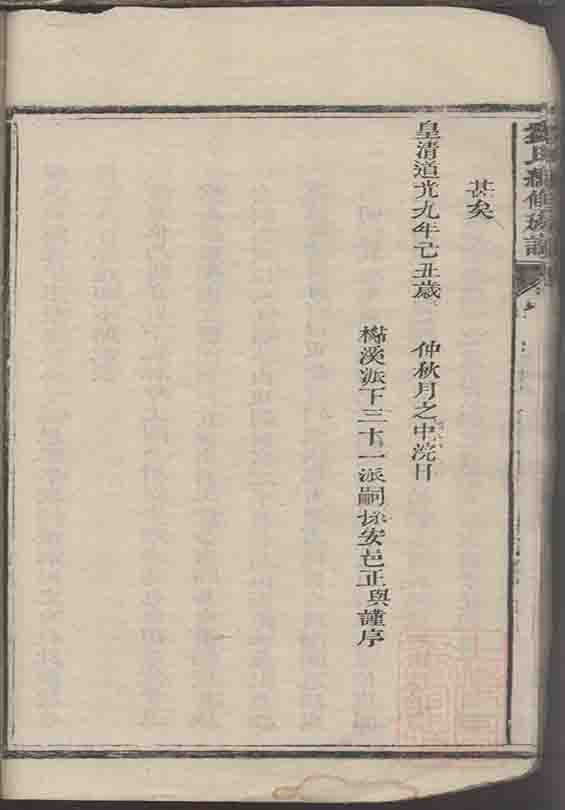 氏新修族譜
甚矣
皇清道光九年己丑歲 仲秋月之中浣日
溪派下三十一派嗣孫安邑正與謹序